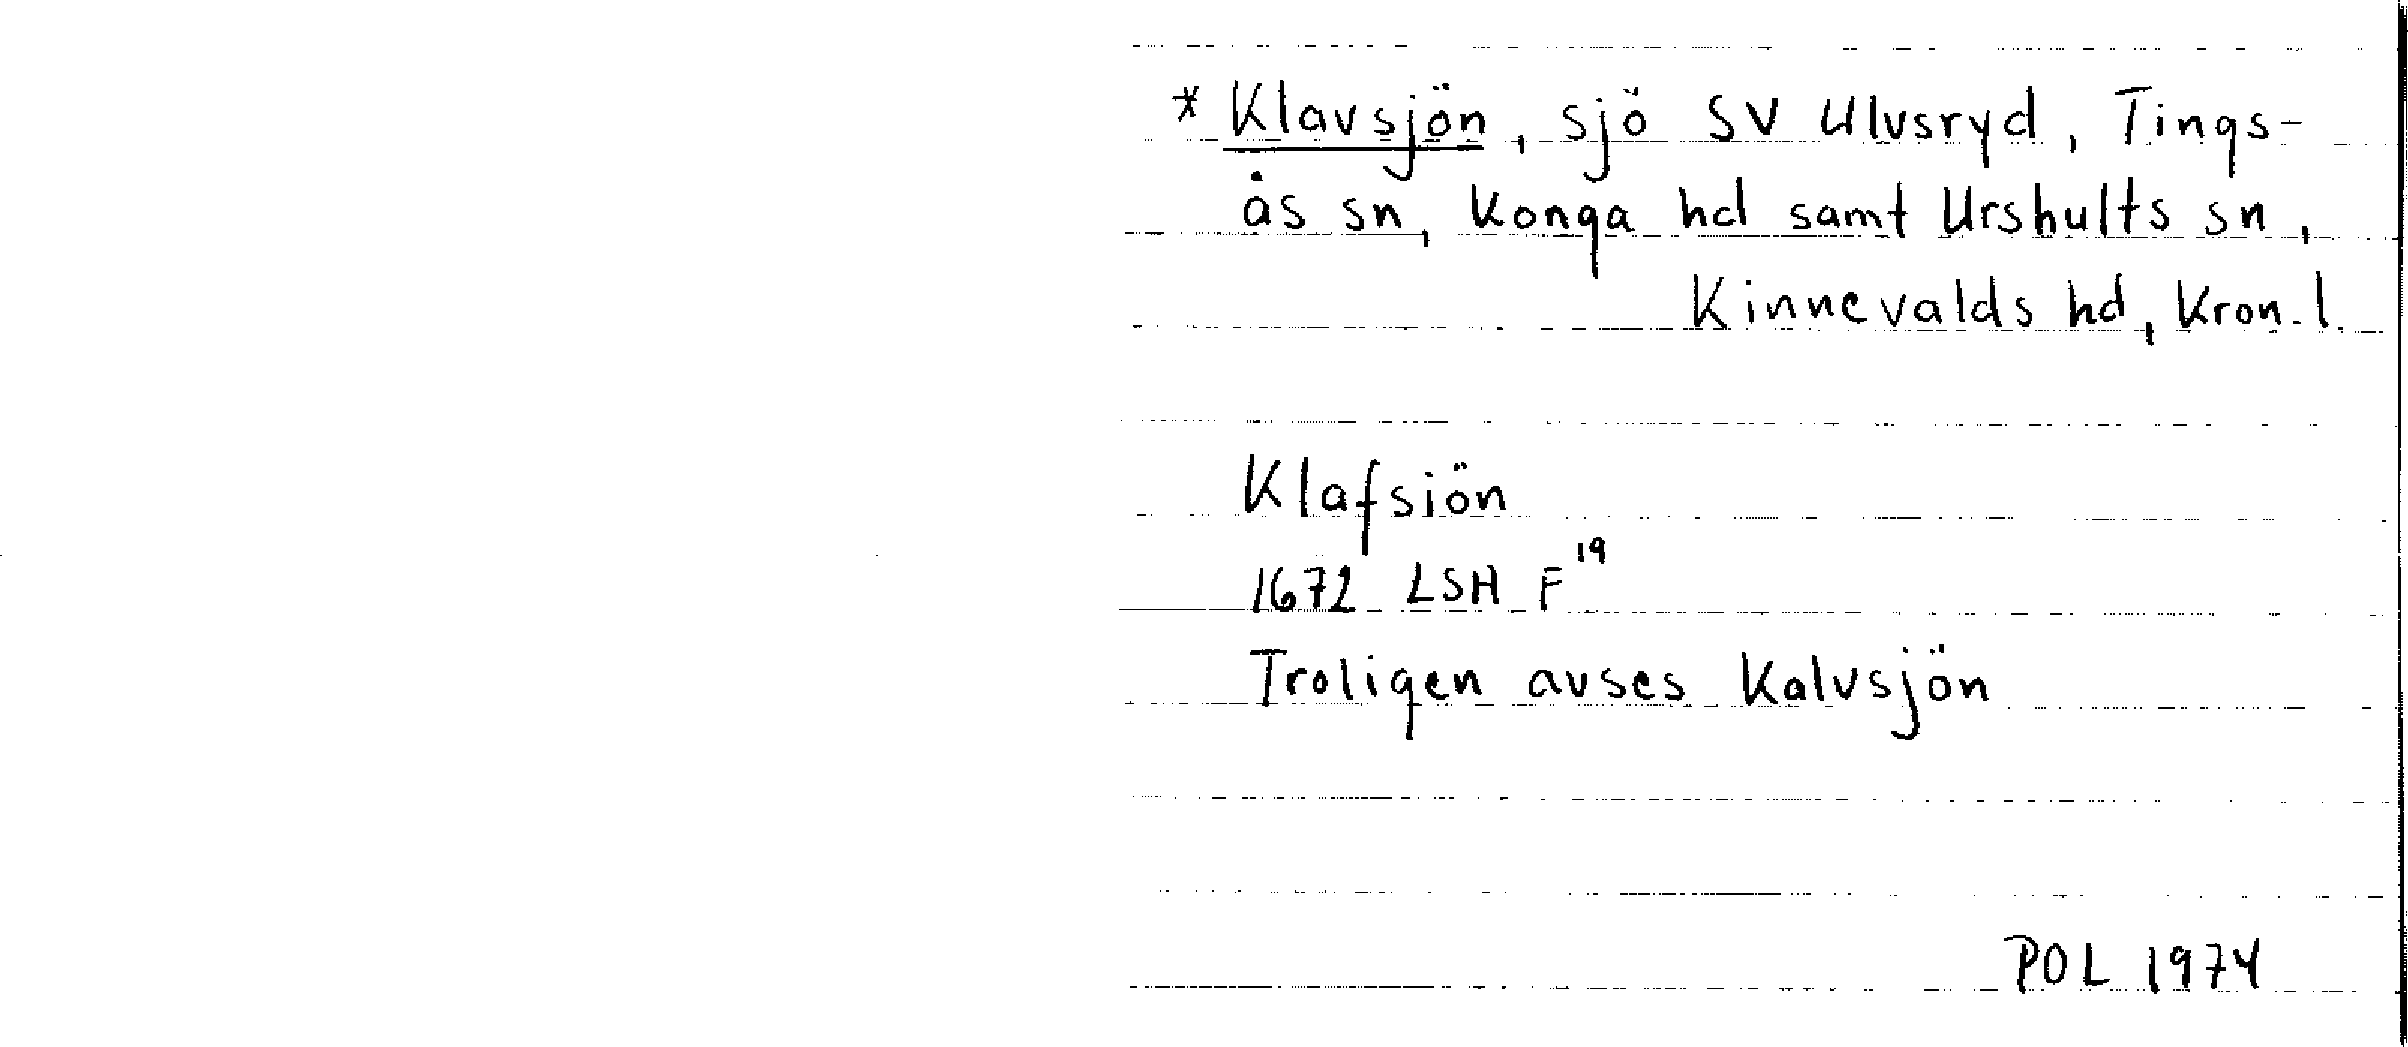 * Klavsjön, sjö SV Ulvsryd, Tings-
ås sn, Konga hd samt Urshults sn,
Kinnevalds hd, Kron. l.
Klafsiön
1672 LSH F¹⁹
Troligen avses Kalvsjön
POL 1974